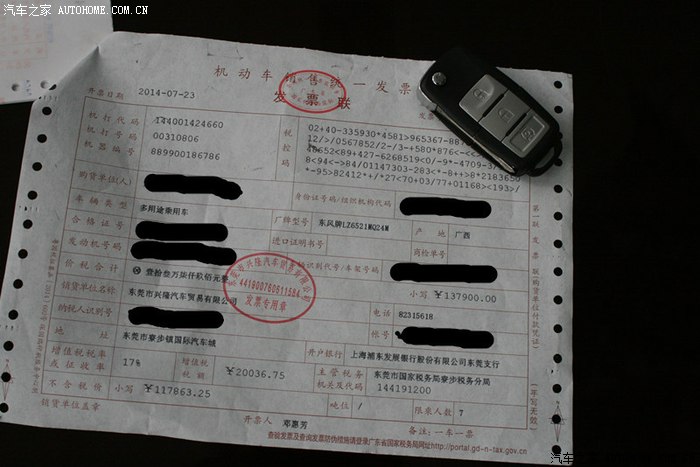 汽车之家 AUTOHOME.COM.CN
机动车销售统一发票
发票联
开票日期 2014-07-23
机打代码 144001424660
机打号码 00310806
机器编号 889900186786
税控码
02+40-335930*4581>965367-88
12/>/0567852/2-/3-+580*876<-<<
48652<89+427-6268519<0/-9*-4709-3/
8<94<->84/01147303-283<*-8++>8*2183650
*-95>82412*+/*27<70+03/77+01168>193>/
购货单位(人) 身份证号码/组织机构代码
车辆类型 多用途乘用车 厂牌型号 东风牌LZ6521MQ24M 产地 广西
合格证号 进口证明书号 商检单号
发动机号码 车辆识别代号/车架号码
价税合计 ⊗壹拾叁万柒仟玖佰元整 小写 ¥137900.00
销货单位名称 东莞市兴隆汽车贸易有限公司 电话 82315618
纳税人识别号 帐号
地址 东莞市寮步镇国际汽车城 开户银行 上海浦东发展银行股份有限公司东莞支行
增值税税率或征收率 17% 增值税税额 ¥20036.75 主管税务机关及代码 东莞市国家税务局寮步税务分局
144191200
不含税价 小写 ¥117863.25 吨位 / 限乘人数 7
销货单位盖章 开票人 邓惠芳 备注:一车一票
查验发票及查询发票防伪措施请登录广东省国家税务局网址http://portal.gd-n-tax.gov.cn
东莞市兴隆汽车贸易有限公司
441900760611584
发票专用章
第一联 发票联(购货单位付款凭证)
(手写无效)